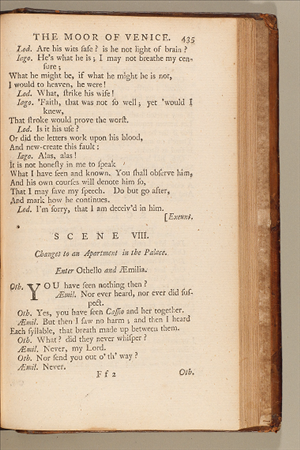 THE MOOR OF VENICE. 435
Lod. Are his wits safe? is he not light of brain?
Iago. He's what he is; I may not breathe my cen-
sure;
What he might be, if what he might he is not,
I would to heaven, he were!
Lod. What, strike his wife!
Iago. 'Faith, that was not so well; yet 'would I
knew,
That stroke would prove the worst.
Lod. Is it his use?
Or did the letters work upon his blood,
And new-create this fault?
Iago. Alas, alas!
It is not honesty in me to speak
What I have seen and known. You shall observe him,
And his own courses will denote him so,
That I may save my speech. Do but go after,
And mark how he continues.
Lod. I'm sorry, that I am deceiv'd in him.
[Exeunt.
SCENE VIII.
Changes to an Apartment in the Palace.
Enter Othello and Æmilia.
Oth. YOU have seen nothing then?
Æmil. Nor ever heard, nor ever did sus-
pect.
Oth. Yes, you have seen Cassio and her together.
Æmil. But then I saw no harm; and then I heard
Each syllable, that breath made up between them.
Oth. What? did they never whisper?
Æmil. Never, my Lord.
Oth. Nor send you out o' th' way?
Æmil. Never.
Ff2 Oth.